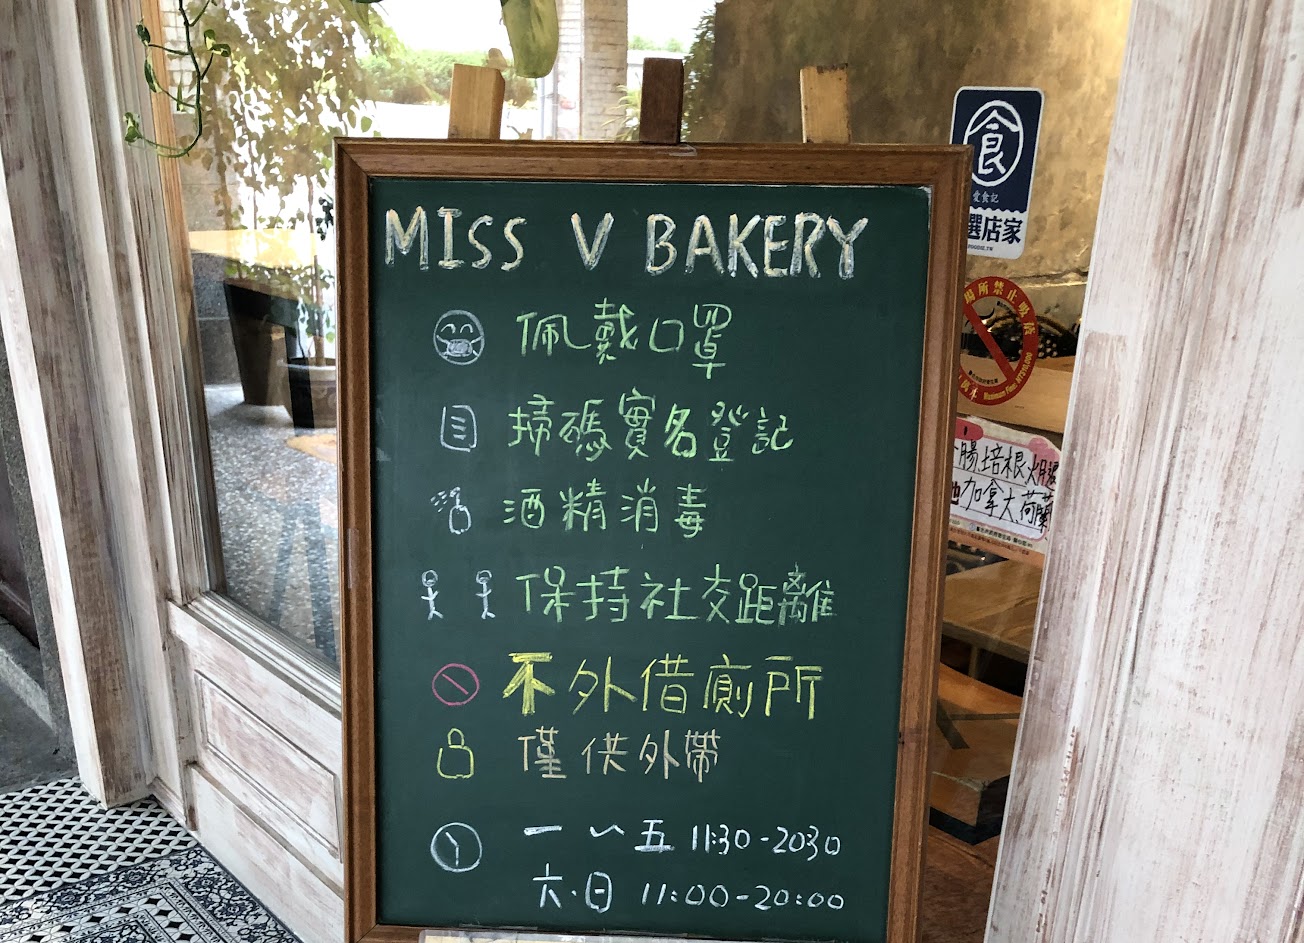 MISS V BAKERY
佩戴口罩
掃碼實名登記
酒精消毒
保持社交距離
不外借廁所
僅供外帶
一~五 11:30-20:30
六.日 11:00-20:00
食
愛食記
選店家
場所禁止吸菸
Maximum Fine: NT$10,000
腸.培根.火腿
加拿大、荷蘭